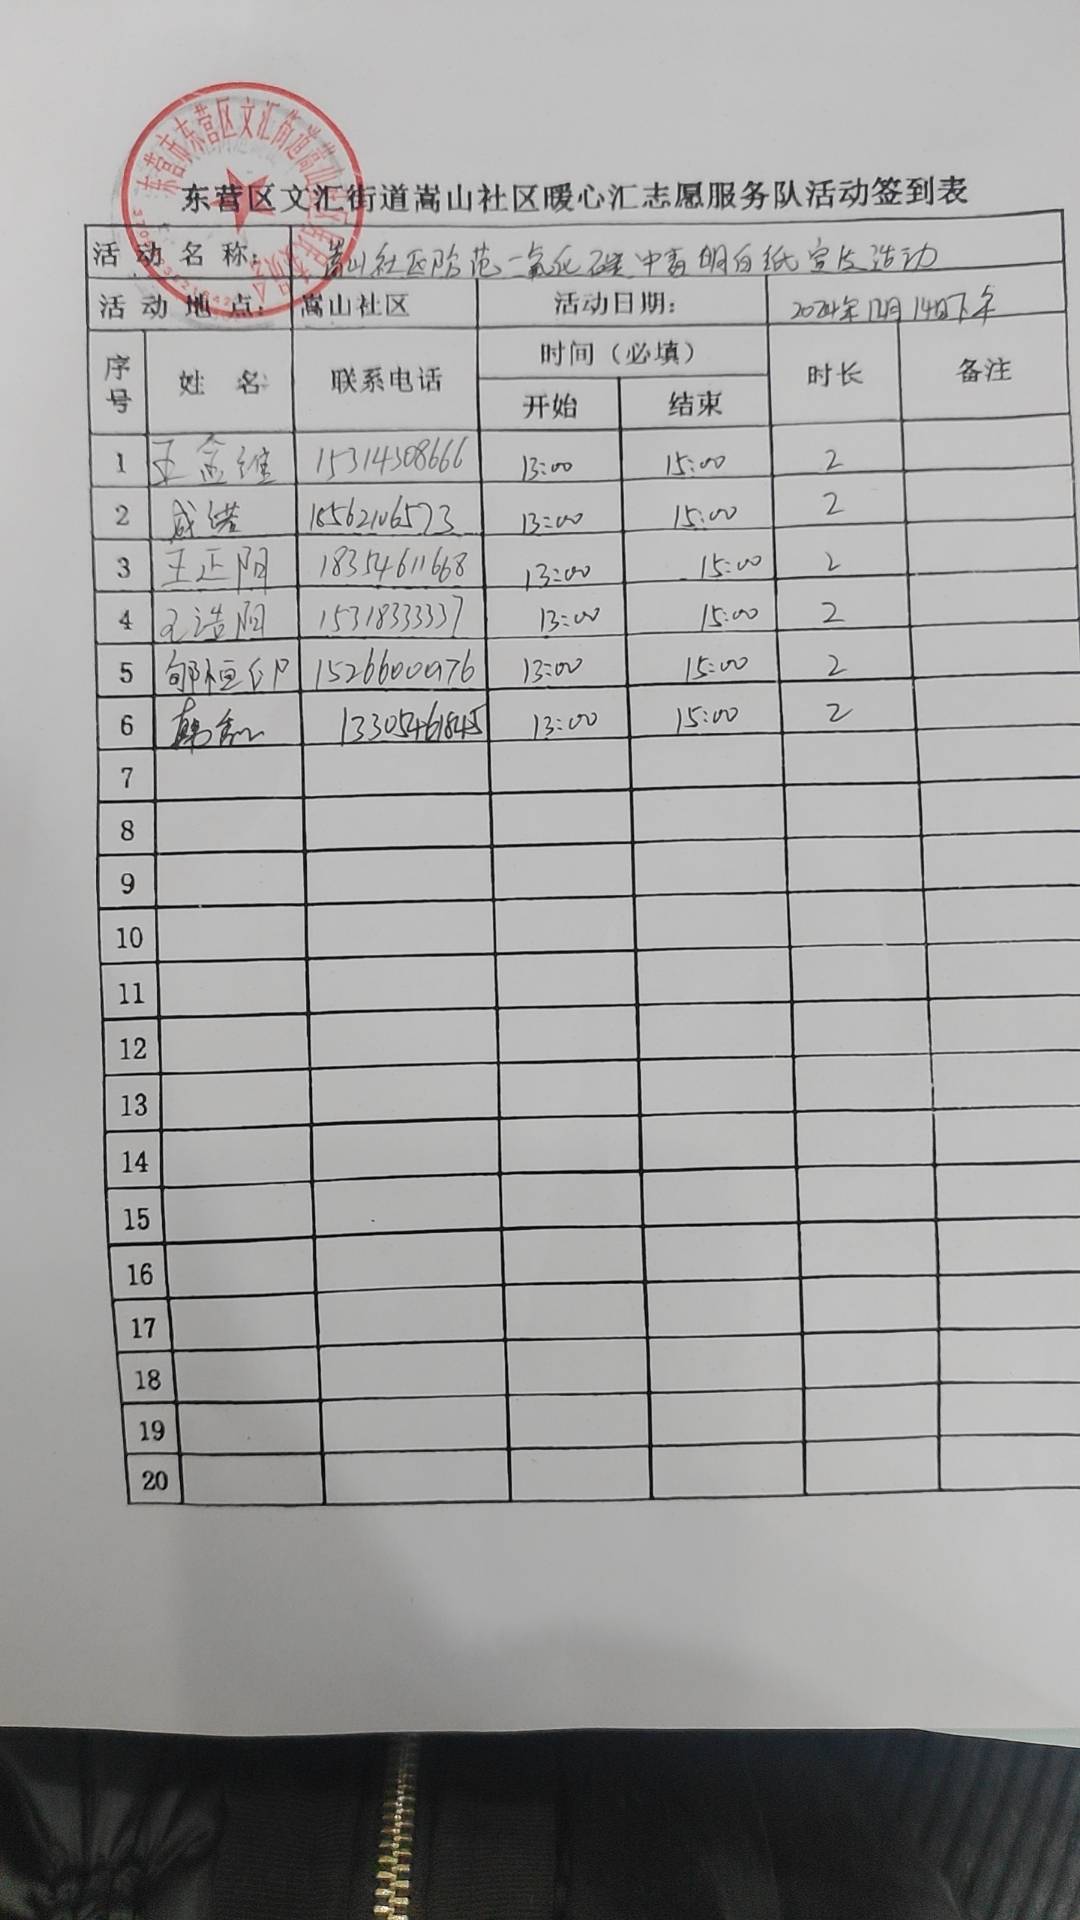 东营区文汇街道嵩山社区暖心汇志愿服务队活动签到表
活动名称: 嵩山社区防范一氧化碳中毒明白纸宣发活动
活动地点: 嵩山社区 活动日期: 2024年12月14日下午
序号 姓名 联系电话 时间（必填） 时长 备注
开始 结束
1 王孟维 15314308666 13:00 15:00 2
2 成诺 18562106573 13:00 15:00 2
3 王正阳 18354611668 13:00 15:00 2
4 王浩阳 15318333337 13:00 15:00 2
5 郇恒 13:00 15:00 2
6 韩 13305461845 13:00 15:00 2
7
8
9
10
11
12
13
14
15
16
17
18
19
20